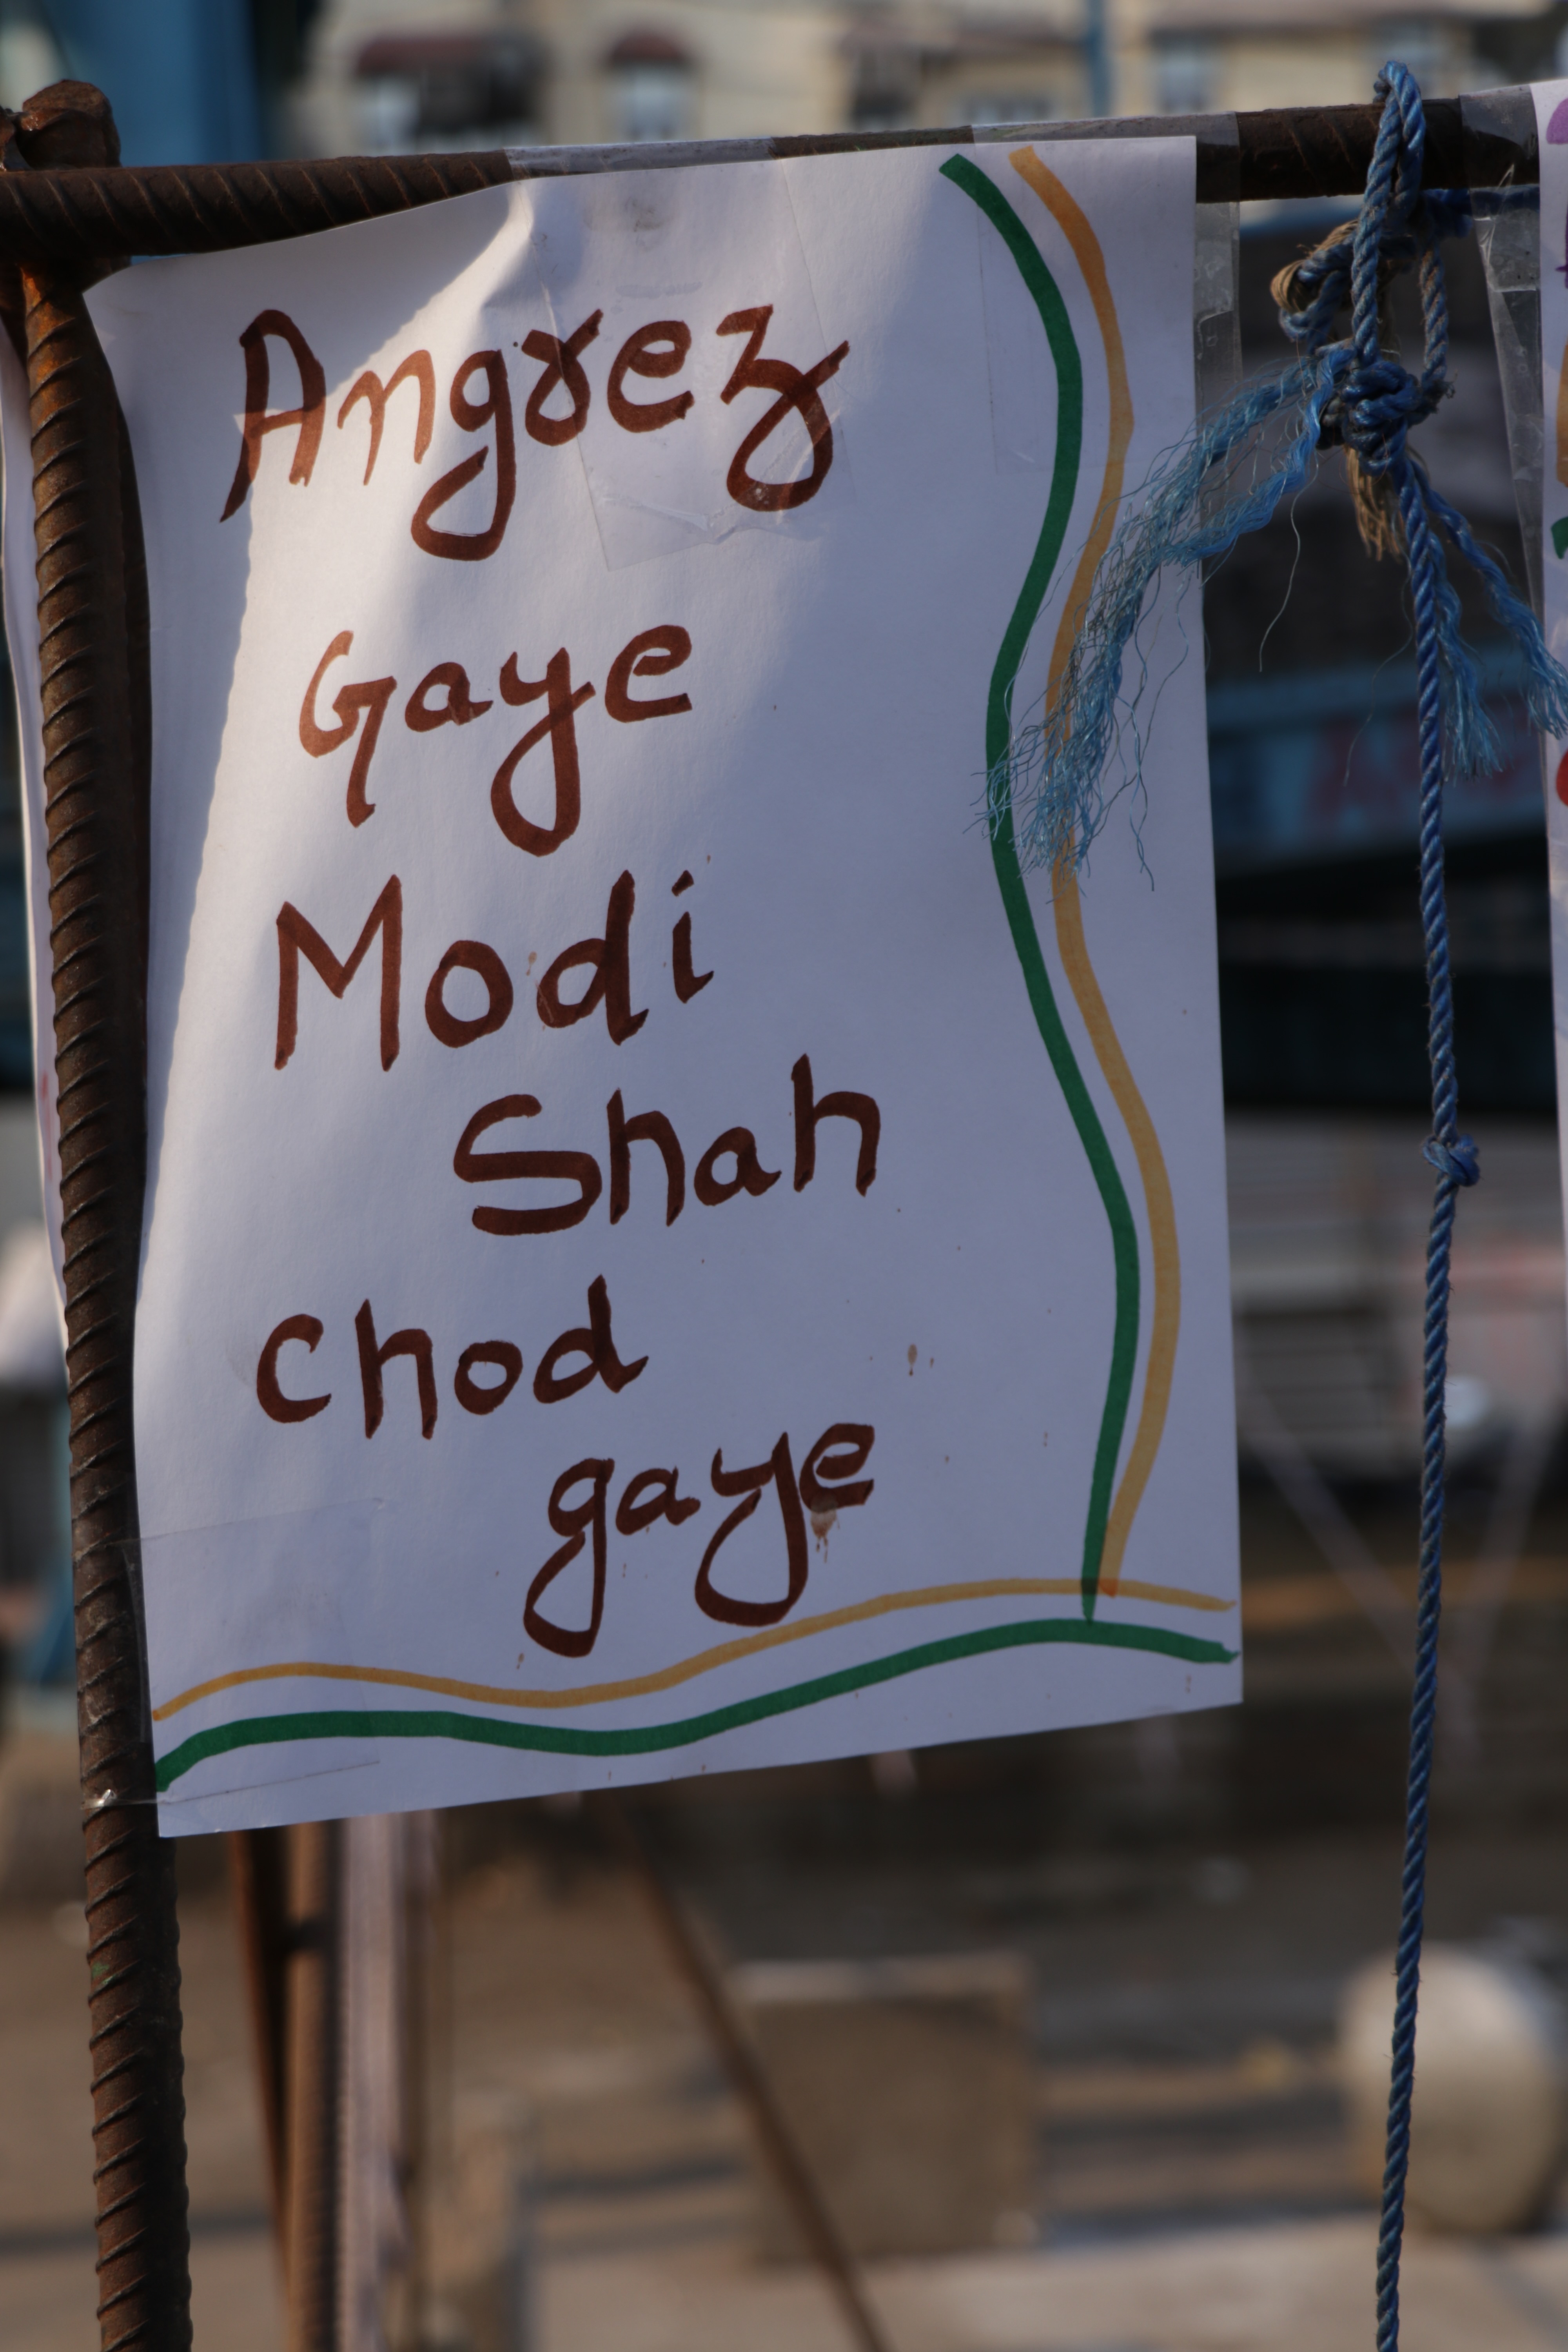 Angrez
Gaye
Modi
Shah
chod
gaye